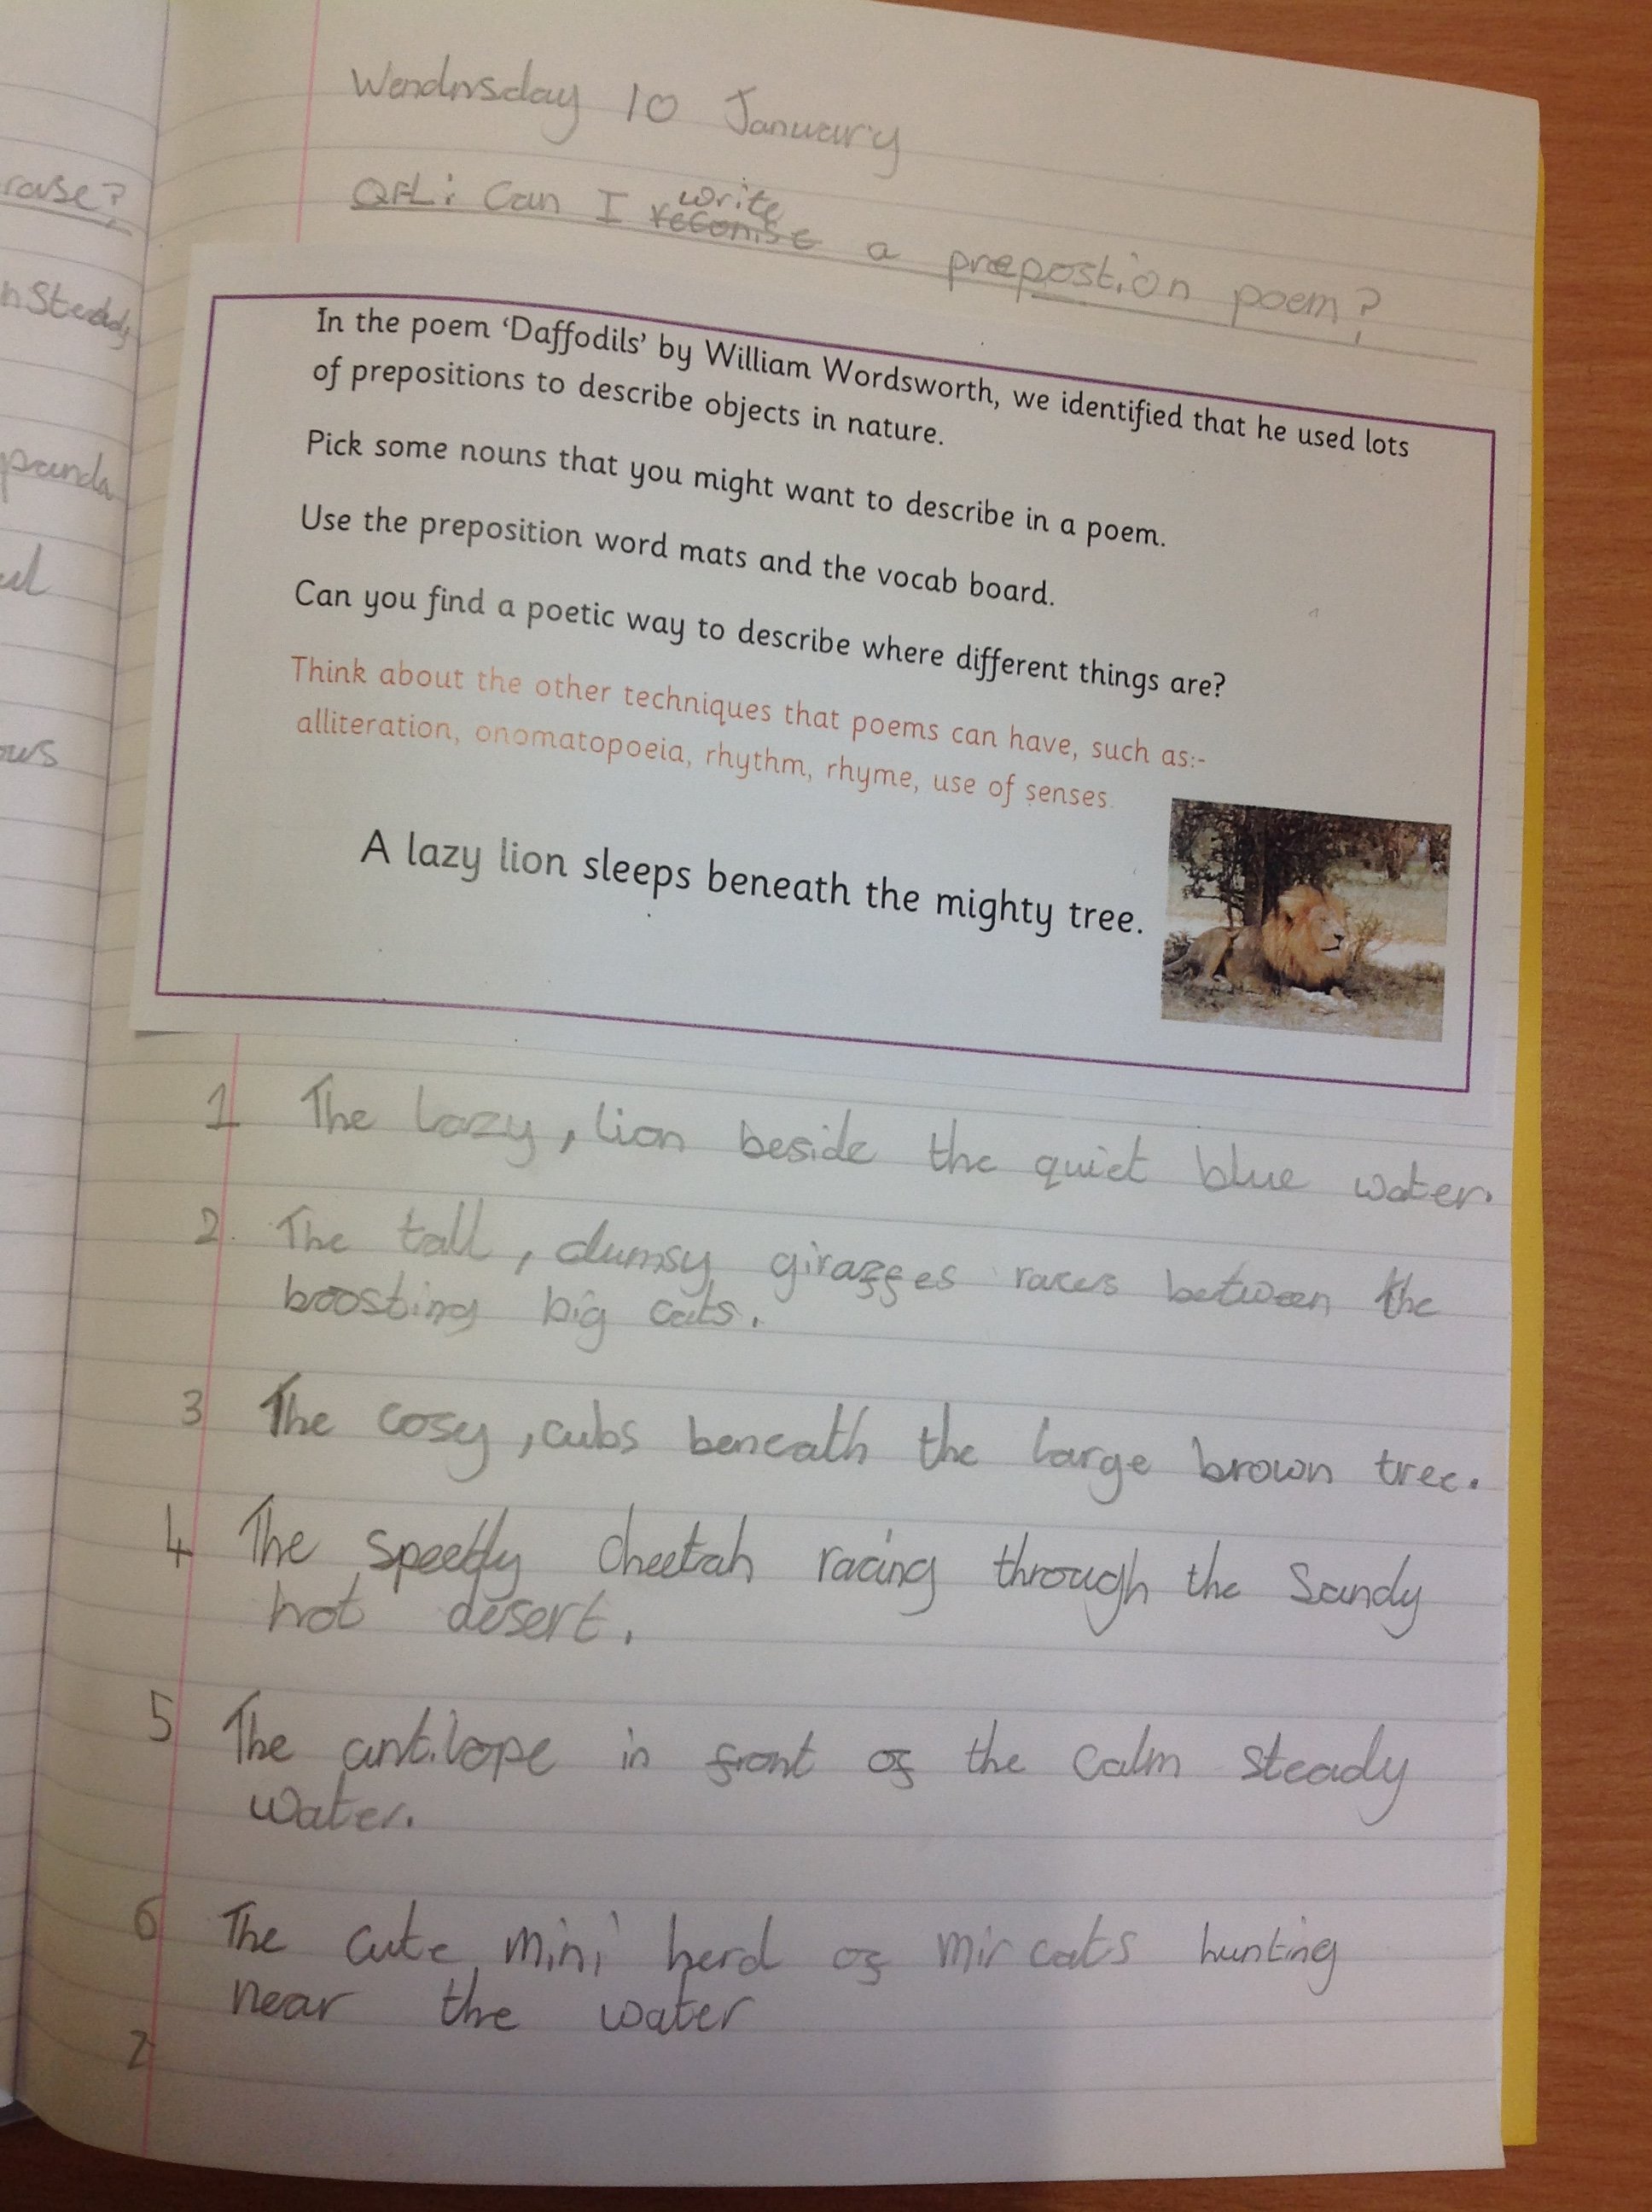 Wendnsday 10 January
QFL: Can I write
reconise a prepostion poem?
In the poem ‘Daffodils’ by William Wordsworth, we identified that he used lots
of prepositions to describe objects in nature.
Pick some nouns that you might want to describe in a poem.
Use the preposition word mats and the vocab board.
Can you find a poetic way to describe where different things are?
Think about the other techniques that poems can have, such as:-
alliteration, onomatopoeia, rhythm, rhyme, use of senses.
A lazy lion sleeps beneath the mighty tree.
1 The lazy, lion beside the quiet blue water.
2. The tall, clumsy giraffes races between the
boosting big cats.
3 The cosy, cubs beneath the large brown tree.
4 The speedy cheetah racing through the Sandy
hot desert.
5 The antilope in front of the calm steady
water.
6 The cute mini herd of mircats hunting
near the water
7
panda